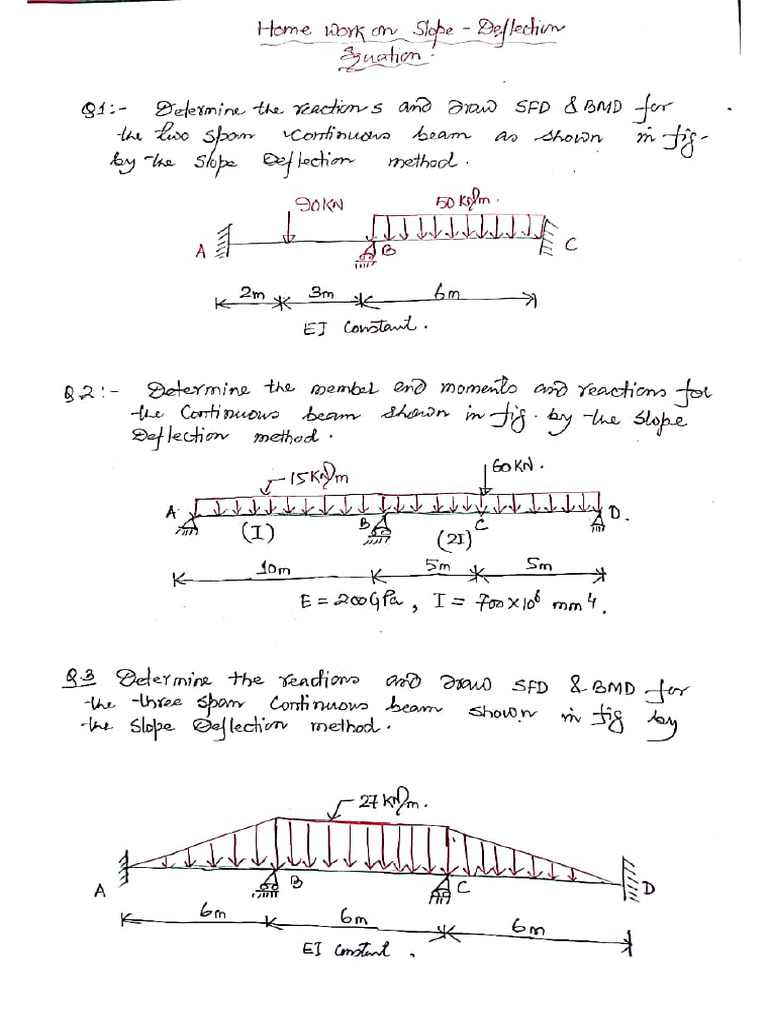 Home work on Slope - Deflection
Equation.
Q1:- Determine the reactions and draw SFD & BMD for
the two span continuous beam as shown in fig-
by the slope Deflection method.
90KN
50 KN/m.
A
B
C
2m
3m
6m
EI Constant.
Q.2:- Determine the member end moments and reactions for
the Continuous beam shown in fig. by the slope
Deflection method.
15KN/m
60KN.
A
B
C
D.
(I)
(2I)
10m
5m
5m
E = 200GPa, I = 700×10⁶ mm⁴.
Q.3 Determine the reactions and draw SFD & BMD for
the three span continuous beam shown in fig by
the slope Deflection method.
27 KN/m.
A
B
C
D
6m
6m
6m
EI constant.